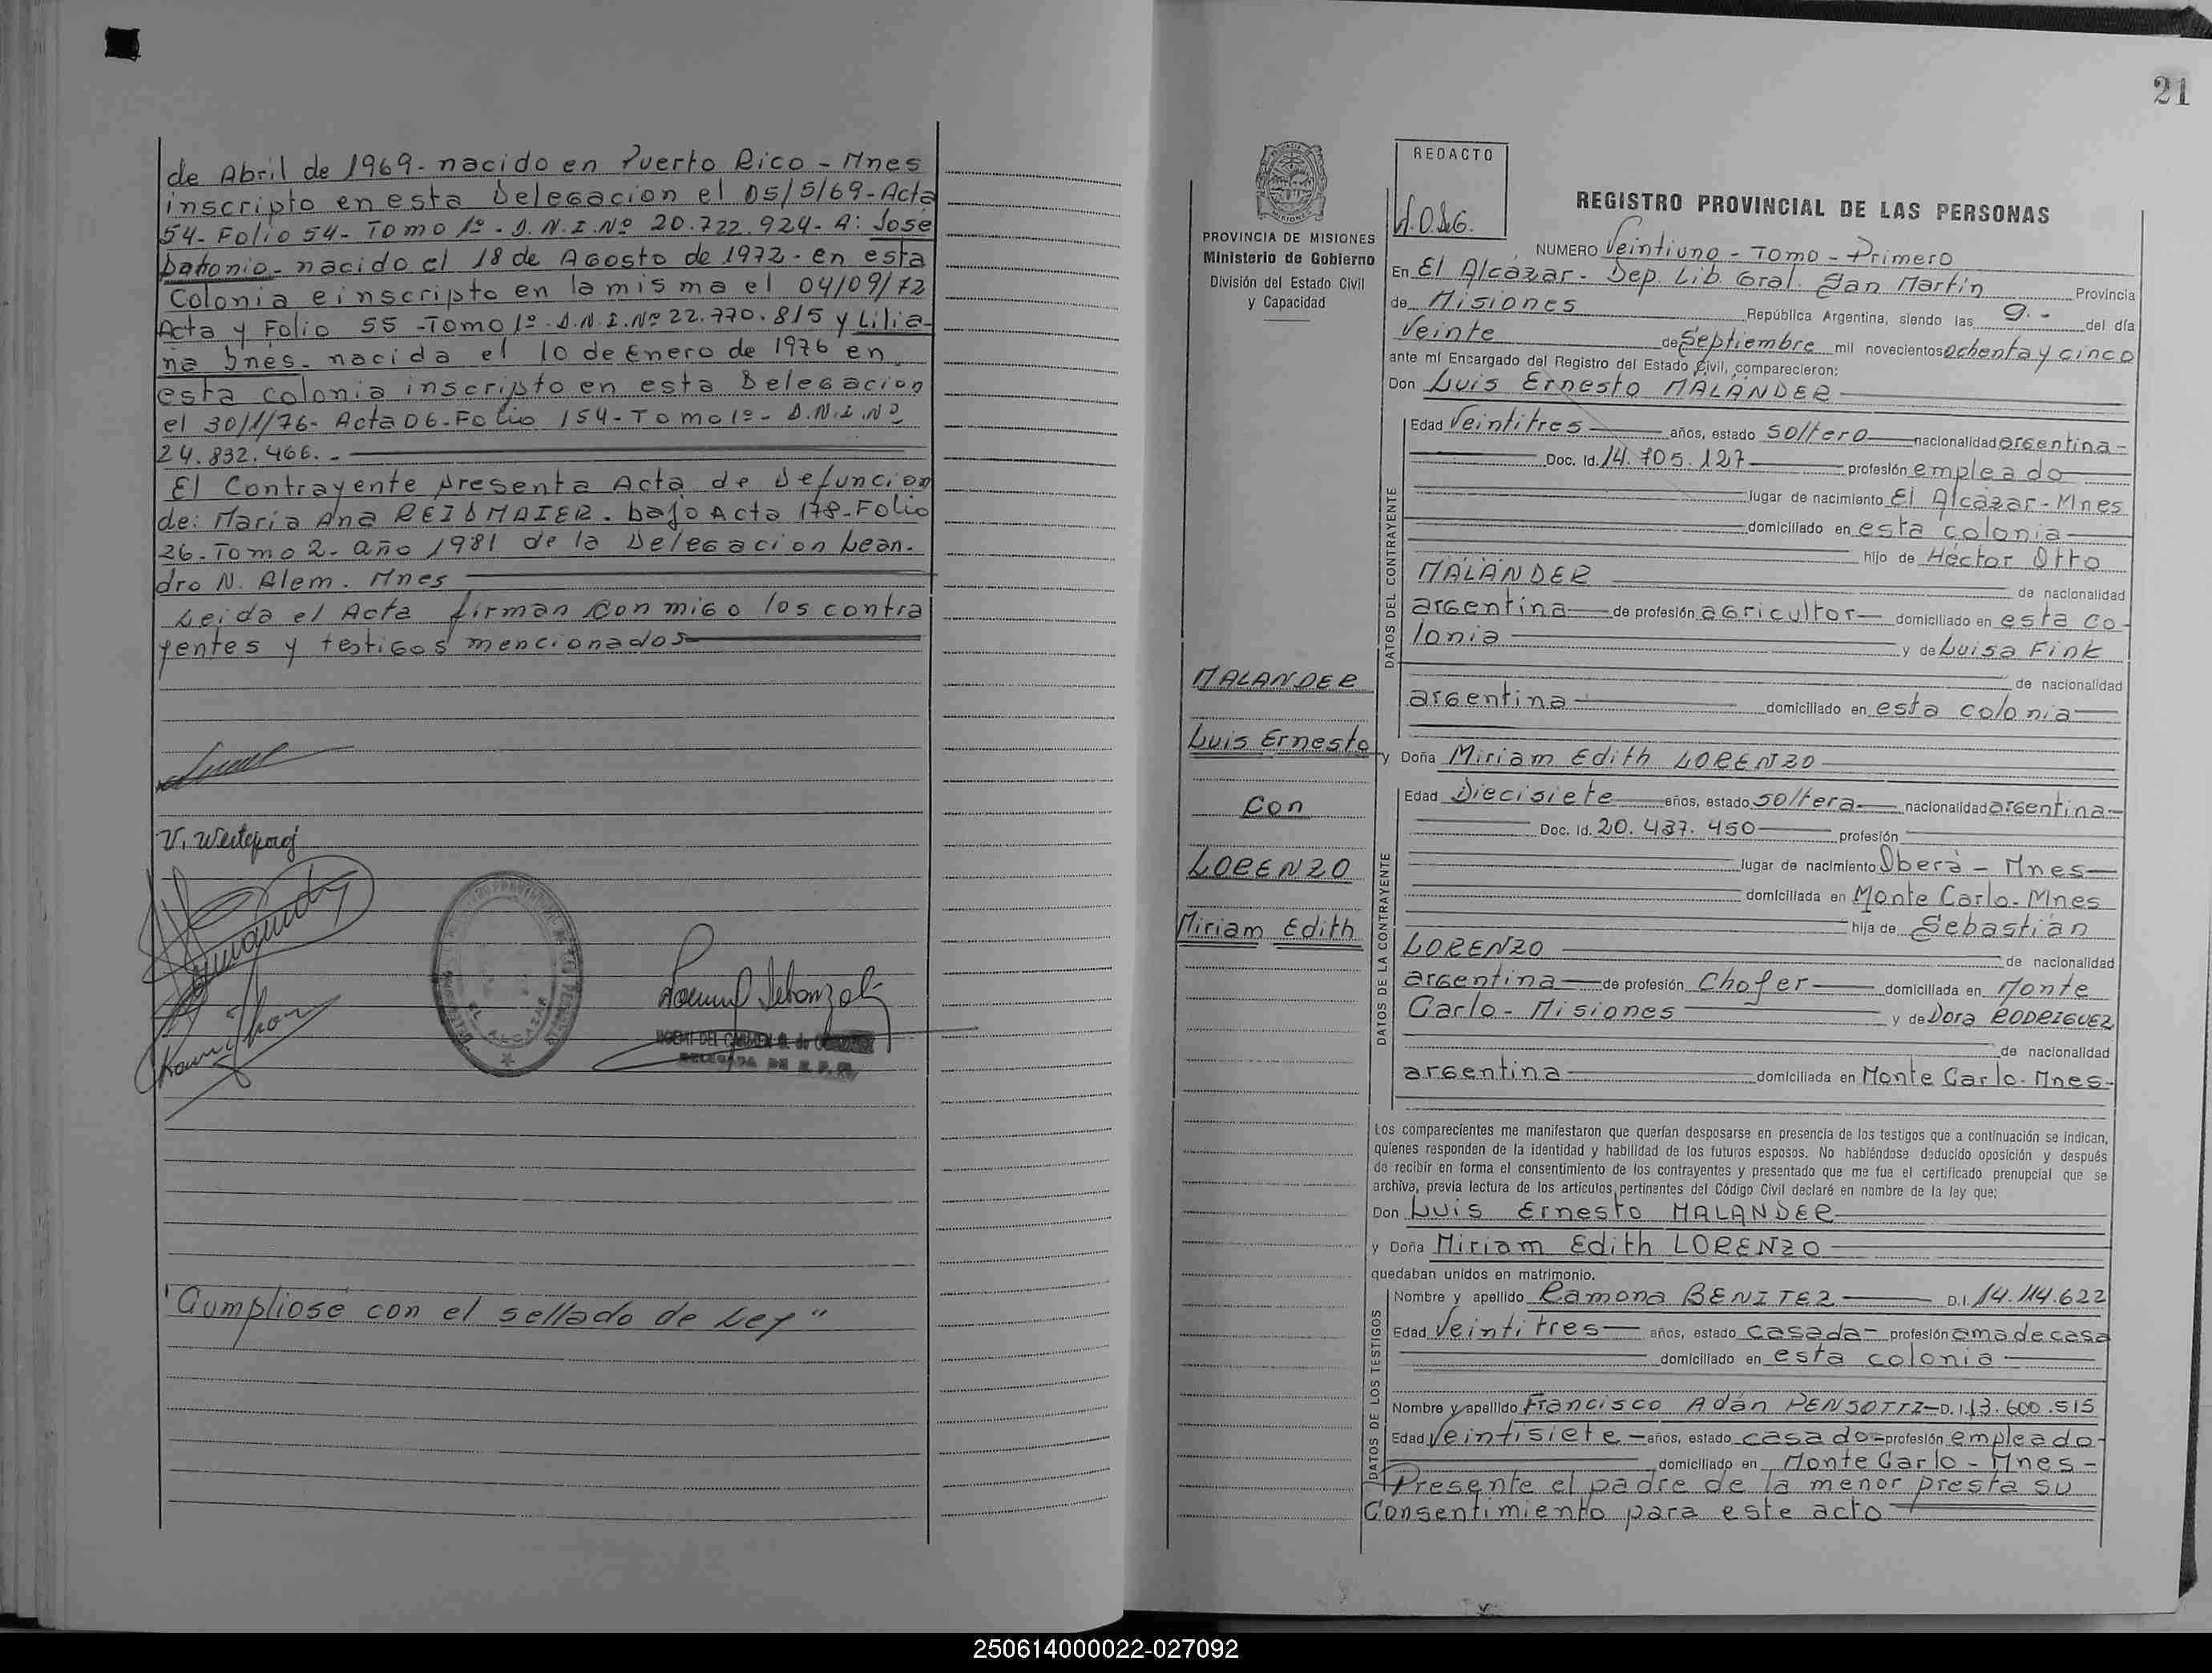 de Abril de 1969- nacido en Puerto Rico - Mnes
inscripto en esta Delegacion el 05/5/69- Acta
54- Folio 54- Tomo 1º - D.N.I. Nº 20.722.924- A: José
Antonio- nacido el 18 de Agosto de 1972- en esta
Colonia e inscripto en la misma el 04/09/72
Acta y Folio 55 - Tomo 1º - D.N.I. Nº 22.770.815 y Lilia-
na Ines- nacida el 10 de Enero de 1976 en
esta colonia inscripto en esta Delegacion
el 30/1/76- Acta 06- Folio 154- Tomo 1º- D.N.I. Nº
24.832.466. -
El Contrayente presenta Acta de Defuncion
de: Maria Ana REIDMAIER. bajo Acta 178- Folio
26- Tomo 2- año 1981 de la Delegacion Lean-
dro N. Alem. Mnes
Leida el Acta firman conmigo los contra
yentes y testigos mencionados
EL ALCAZAR
NOEMI DEL CARMEN G. de
DELEGADA DE R. P.
"Cumpliose con el sellado de Ley"
21
PROVINCIA DE MISIONES
Ministerio de Gobierno
División del Estado Civil
y Capacidad
REDACTO
REGISTRO PROVINCIAL DE LAS PERSONAS
NUMERO Veintiuno - Tomo - Primero
En El Alcázar - Dep. Lib. Gral. San Martin Provincia
de Misiones República Argentina, siendo las 9.- del día
Veinte de Septiembre mil novecientos ochenta y cinco
ante mí Encargado del Registro del Estado Civil, comparecieron:
Don Luis Ernesto MALANDER
DATOS DEL CONTRAYENTE
Edad Veintitres años, estado soltero nacionalidad argentina-
Doc. Id. 14.705.127 profesión empleado
lugar de nacimiento El Alcázar- Mnes
domiciliado en esta colonia
hijo de Héctor Otto
MALANDER de nacionalidad
argentina de profesión agricultor domiciliado en esta co-
lonia y de Luisa Fink
de nacionalidad
argentina domiciliado en esta colonia
MALANDER
Luis Ernesto
con
LORENZO
Miriam Edith
y Doña Miriam Edith LORENZO
DATOS DE LA CONTRAYENTE
Edad Diecisiete años, estado soltera nacionalidad argentina-
Doc. Id. 20.437.450 profesión
lugar de nacimiento Oberá - Mnes
domiciliada en Monte Carlo- Mnes
hija de Sebastián
LORENZO de nacionalidad
argentina de profesión Chofer domiciliada en Monte
Carlo- Misiones y de Dora RODRIGUEZ
de nacionalidad
argentina domiciliada en Monte Carlo- Mnes-
Los comparecientes me manifestaron que querían desposarse en presencia de los testigos que a continuación se indican,
quienes responden de la identidad y habilidad de los futuros esposos. No habiéndose deducido oposición y después
de recibir en forma el consentimiento de los contrayentes y presentado que me fue el certificado prenupcial que se
archiva, previa lectura de los artículos pertinentes del Código Civil declaré en nombre de la ley que:
Don Luis Ernesto MALANDER
y Doña Miriam Edith LORENZO
quedaban unidos en matrimonio.
DATOS DE LOS TESTIGOS
Nombre y apellido Ramona BENITEZ D.I. 14.114.622
Edad Veintitres años, estado casada- profesión ama de casa
domiciliado en esta colonia
Nombre y apellido Francisco Adán PENSOTTI D.I. 13.600.515
Edad Veintisiete años, estado casado profesión empleado
domiciliado en Monte Carlo - Mnes -
Presente el padre de la menor presta su
Consentimiento para este acto
250614000022-027092